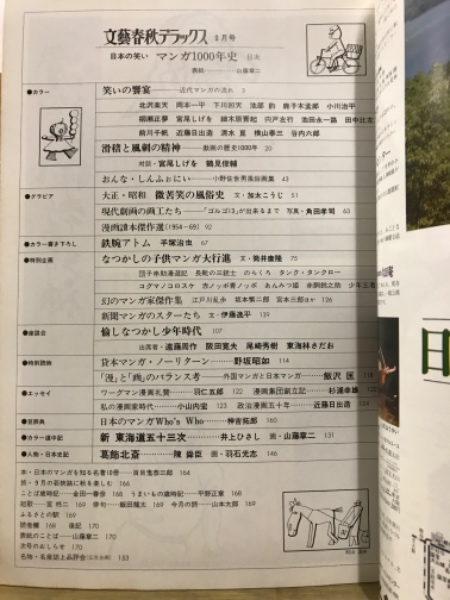 文藝春秋デラックス 9月号
日本の笑い マンガ1000年史 目次
表紙――山藤章二
●カラー 笑いの饗宴――近代マンガの流れ 3
北沢楽天 岡本一平 下川凹天 池部 鈞 麻生豊 小川治平
柳瀬正夢 宮尾しげを 横山泰三 谷内六郎
前川千帆 近藤日出造 清水 崑 横山泰三 谷内六郎
滑稽と風刺の精神――戯画の歴史1000年 20
対談・宮尾しげを 鶴見俊輔
おんな・しんふぉにい――小野佐世男風俗画集 43
●グラビア 大正・昭和 微苦笑の風俗史 文・加太こうじ 51
現代劇画の画工たち――「ゴルゴ13」が出来るまで 写真・角田孝司 63
漫画讀本傑作選(1954―69) 92
●カラー書き下ろし 鉄腕アトム 手塚治虫 67
●特別企画 なつかしの子供マンガ大行進 文・筒井康隆 75
団子串助漫遊記 長靴の三銃士 のらくろ タンク・タンクロー
コグマノコロスケ 冒険ダン吉
幻のマンガ家傑作集 江戸川乱歩 坂本繁二郎 宮本三郎ほか 126
新聞マンガのスターたち 文・伊藤逸平 139
●座談会 愉しなつかし少年時代 107
出席者・遠藤周作 阪田寛夫 尾崎秀樹 東海林さだお
●特別読物 貸本マンガ・ノーリターン――野坂昭如 114
「漫」と「画」のバランス考――外国マンガと日本マンガ――飯沢 匡 118
●エッセイ ワーグマン漫画礼賛――羽仁五郎 122 漫画集団創立記――杉浦幸雄
私の漫画家時代――小山内宏 123 政治漫画五十年――近藤日出造
日本のマンガWho's Who――神吉拓郎 160
●カラー道中記 新 東海道五十三次――井上ひさし 画・山藤章二 131
●人物・日本史記 葛飾北斎――陳 舜臣 画・羽石光志 146
本・日本のマンガを知る名著10冊――百目鬼恭三郎 164
旅・9月の最後に秋を楽しむ 166
ことば歳時記――金田一春彦 168 うまいもの歳時記――平野正章 168
短歌――宮 柊二 169 俳句――飯田龍太 169 今月の詩――山本太郎 169
ふるさとの駅 169
読者欄 168 後記 170
表紙のことば――山藤章二 170
次号のおしらせ 170
名物・名産誌上品評会 153